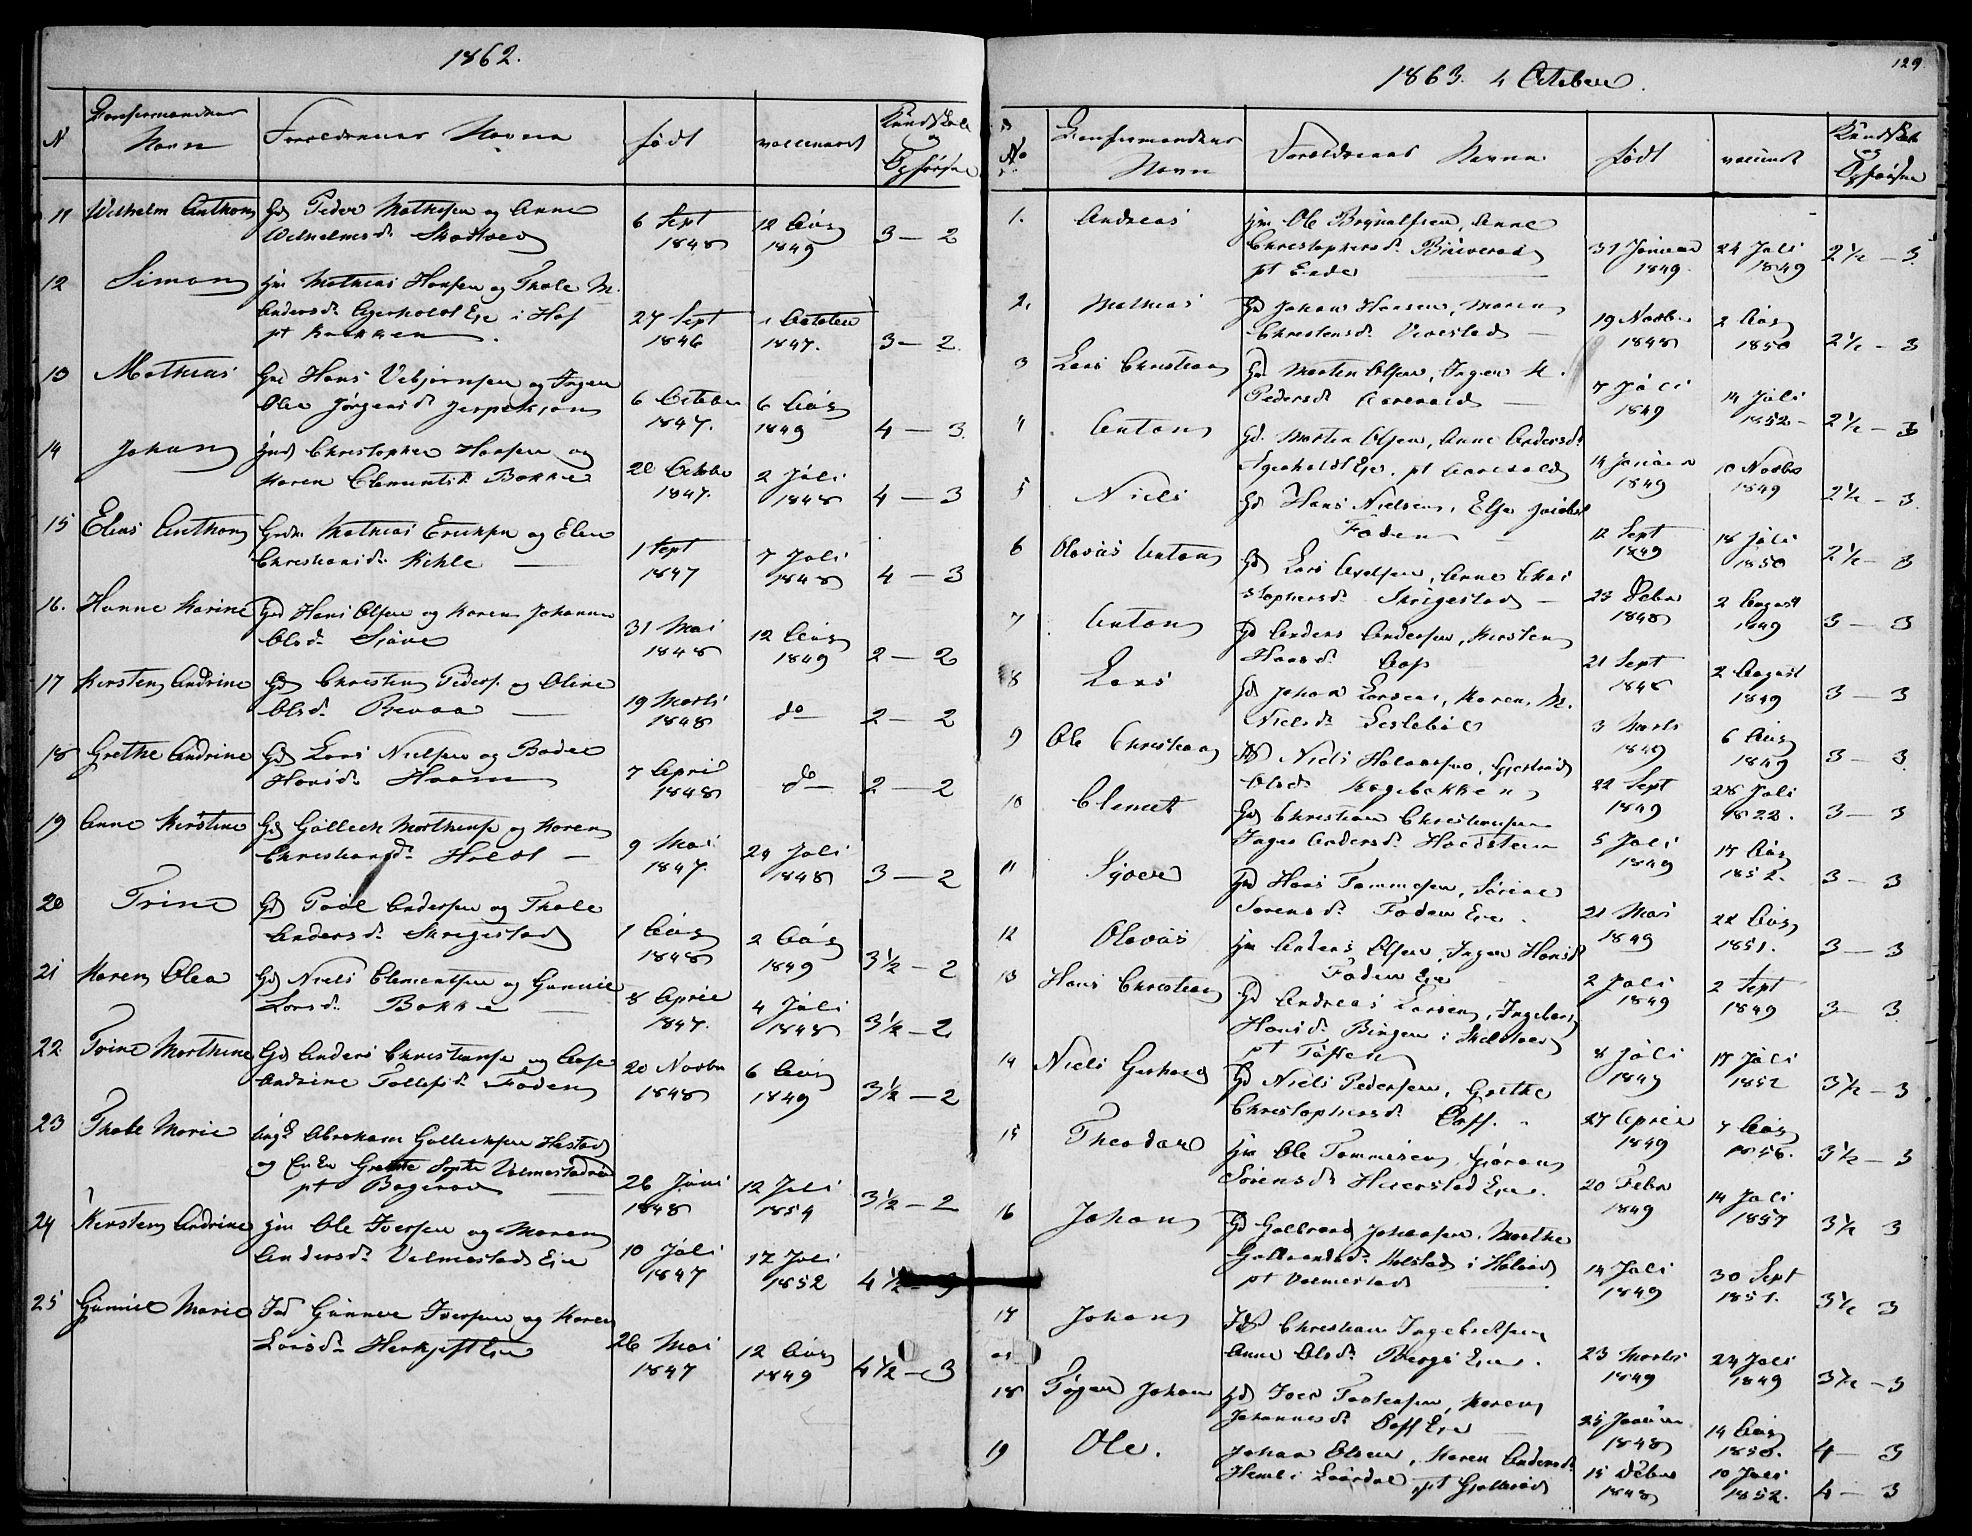 1862.
N
Confirmandens Navn
Foreldrenes Navne
født
vaccineret
Kundskab og Opførsel
11 Wilhelm Anthon
Gd Peder Mathisen og Anne
Wilhelmsd.
6 Sept 1848
12 Aug 1849
3 — 2
12 Simon
Hm Mathias Hansen og Thale M.
Andersd. Agerholdt Eje i Hof
pt Bakken.
27 Sept 1846
1 October 1847.
3 — 2.
13 Mathias
Gd Hans Vebjørnsen og Inger
Olea Jørgensd.
6 October 1847.
6 Aug 1849
4 — 3.
14 Johan
Christopher Hansen og
Karen Clementsd. Bakke
20 Octobr 1847.
2 Juli 1848
4 — 3
15 Elias Anthon
Mathias Eriksen og Elen
Christiansd. Kihle —
1 Sept 1847
7 Juli 1848
4 — 3
16. Hanne Karine
Gd Hans Olsen og Karen Johanne
Olsd.
31 Mai 1848
12 Aug 1849
2 — 2
17 Kirsten Andrine
Gd Christen Peders. og Oline
Olsd. Revaa —
19 Marts 1848
do
2 — 2
18 Grethe Andrine
Gd Lars Nielsen og Bodil
Hansd.
7 April 1848
do
2 — 2
19 Anne Kirstine
Gd Gulleck Morthense og Karen
Christiansd. Holdt —
9 Mai 1847.
24 Juli 1848
3 — 2
20 Trine
Gd Paul Andersen og Thale
Andersd. Skregestad
1 Aug 1848
2 Aug 1849
3½ — 2
21 Karen Olea
Gd Niels Clementsen og Gunnil
Larsd. Bakke —
8 April 1847.
4 Juli 1848
3½ — 2
22 Trine Morthine
Gd Anders Christianse og
Andrine Tollefsd. Foden
20 Novbr 1848
6 Aug 1849
3½ — 2
23 Thale Marie
Ungk. Abraham Gullecksen
og Grethe Sophie
pt Bogerud —
26 Juni 1848
12 Juli 1854
3½ — 2
24 Kirsten Andrine
Hm Ole Iversen og Maren
Andersd. Valmestad Eje
10 Juli 1847
17 Juli 1852
4½ — 3
25 Gunnil Marie
Gunner Iversen og Karen
Larsd.
26 Mai 1847
12 Aug 1849
4½ — 3
129.
1863. 4 October.
No
Confirmandens Navn
Foreldrenes Navne
født
vaccinert
Kundskab og Opførsel
1. Andreas
Hm Ole Brynulfsen, Anne
Christophersd.
pt Eide —
31 Januar 1849.
24 Juli 1849
2½ — 3.
2. Mathias
Gd Johan Hansen, Maren
Christensd. —
19 Novbr 1848
2 Aug 1850
2½ — 3
3 Lars Christian
Gd Morten Olsen, Inger M.
Pedersd. —
7 Juli 1849
14 Juli 1852
2½ — 3
4 Anton
Gd. Morten Olsen, Anne Andersd.
Agerholdt Eje. pt
14 Januar 1849
10 Novbr 1849
2½ — 3.
5 Niels
Gd Hans Nielsen, Else Jacobsd
Foden
12 Sept 1849
18 Juli 1850
2½ — 3
6 Olavus Anton
Gd Lars Axelsen, Anne Chri
stophersd. Skrigestad —
23 Debr 1848
2 August 1849
3 — 3
7 Anton
Gd Anders Andersen, Kirsten
Hansd.
21 Sept 1848
2 August 1849
3 — 3
8 Lars
Gd Johan Larsen, Karen M.
Nielsd.
3 Marts 1849
6 Aug 1849
3 — 3.
9 Ole Christian
Niels Halvorsen,
Olsd. Hagebakken
22 Sept 1849
28 Juli 1822.
3 — 3
10 Clemet
Gd Christian Christiansen
Inger Andersd.
5 Juli 1849
17 Aug 1852.
3 — 3
11
Gd Hans Tommesen, Sørine
Sørensd. Foden Eje.
21 Mai 1849
22 Aug 1851.
3 — 3
12 Olavus
Hm Anders Olsen, Inger Hansd
Foden Eje
2 Juli 1849
2 Sept 1849
3 — 3.
13 Hans Christian
Gd Andreas Larsen, Ingeborg
Hansd. Bingen i
pt
8 Juli 1849
17 Juli 1852
3½ — 3
14 Niels Gerhard
Gd Niels Pedersen, Grethe
Christophersd.
27 April 1849
7 Aug 1856.
3½ — 3
15 Theodor
Hm Ole Tommesen, Gjøran
Sørensd. Eje.
20 Febr 1849
14 Juli 1857
3½ 3
16 Johan
Gd Gulbrand Johansen, Marthe
Gulbrandsd. Holstad i
pt Valmestad
14 Juli 1849
30 Sept 1851.
3½ 3
17 Johan
Christian Ingebretsen
Anne Olsd. Berge Eje.
23 Marts 1849
24 Juli 1849
3½ — 3
18 Johan
Gd Iver Torkersen, Karen
Johannesd. Eje —
25 Januar 1848
14 Aug 1850.
4 — 3
19 Ole.
Johan Olsen, Karen Andersd.
pt
15 Debr 1848
10 Juli 1852.
4 — 3